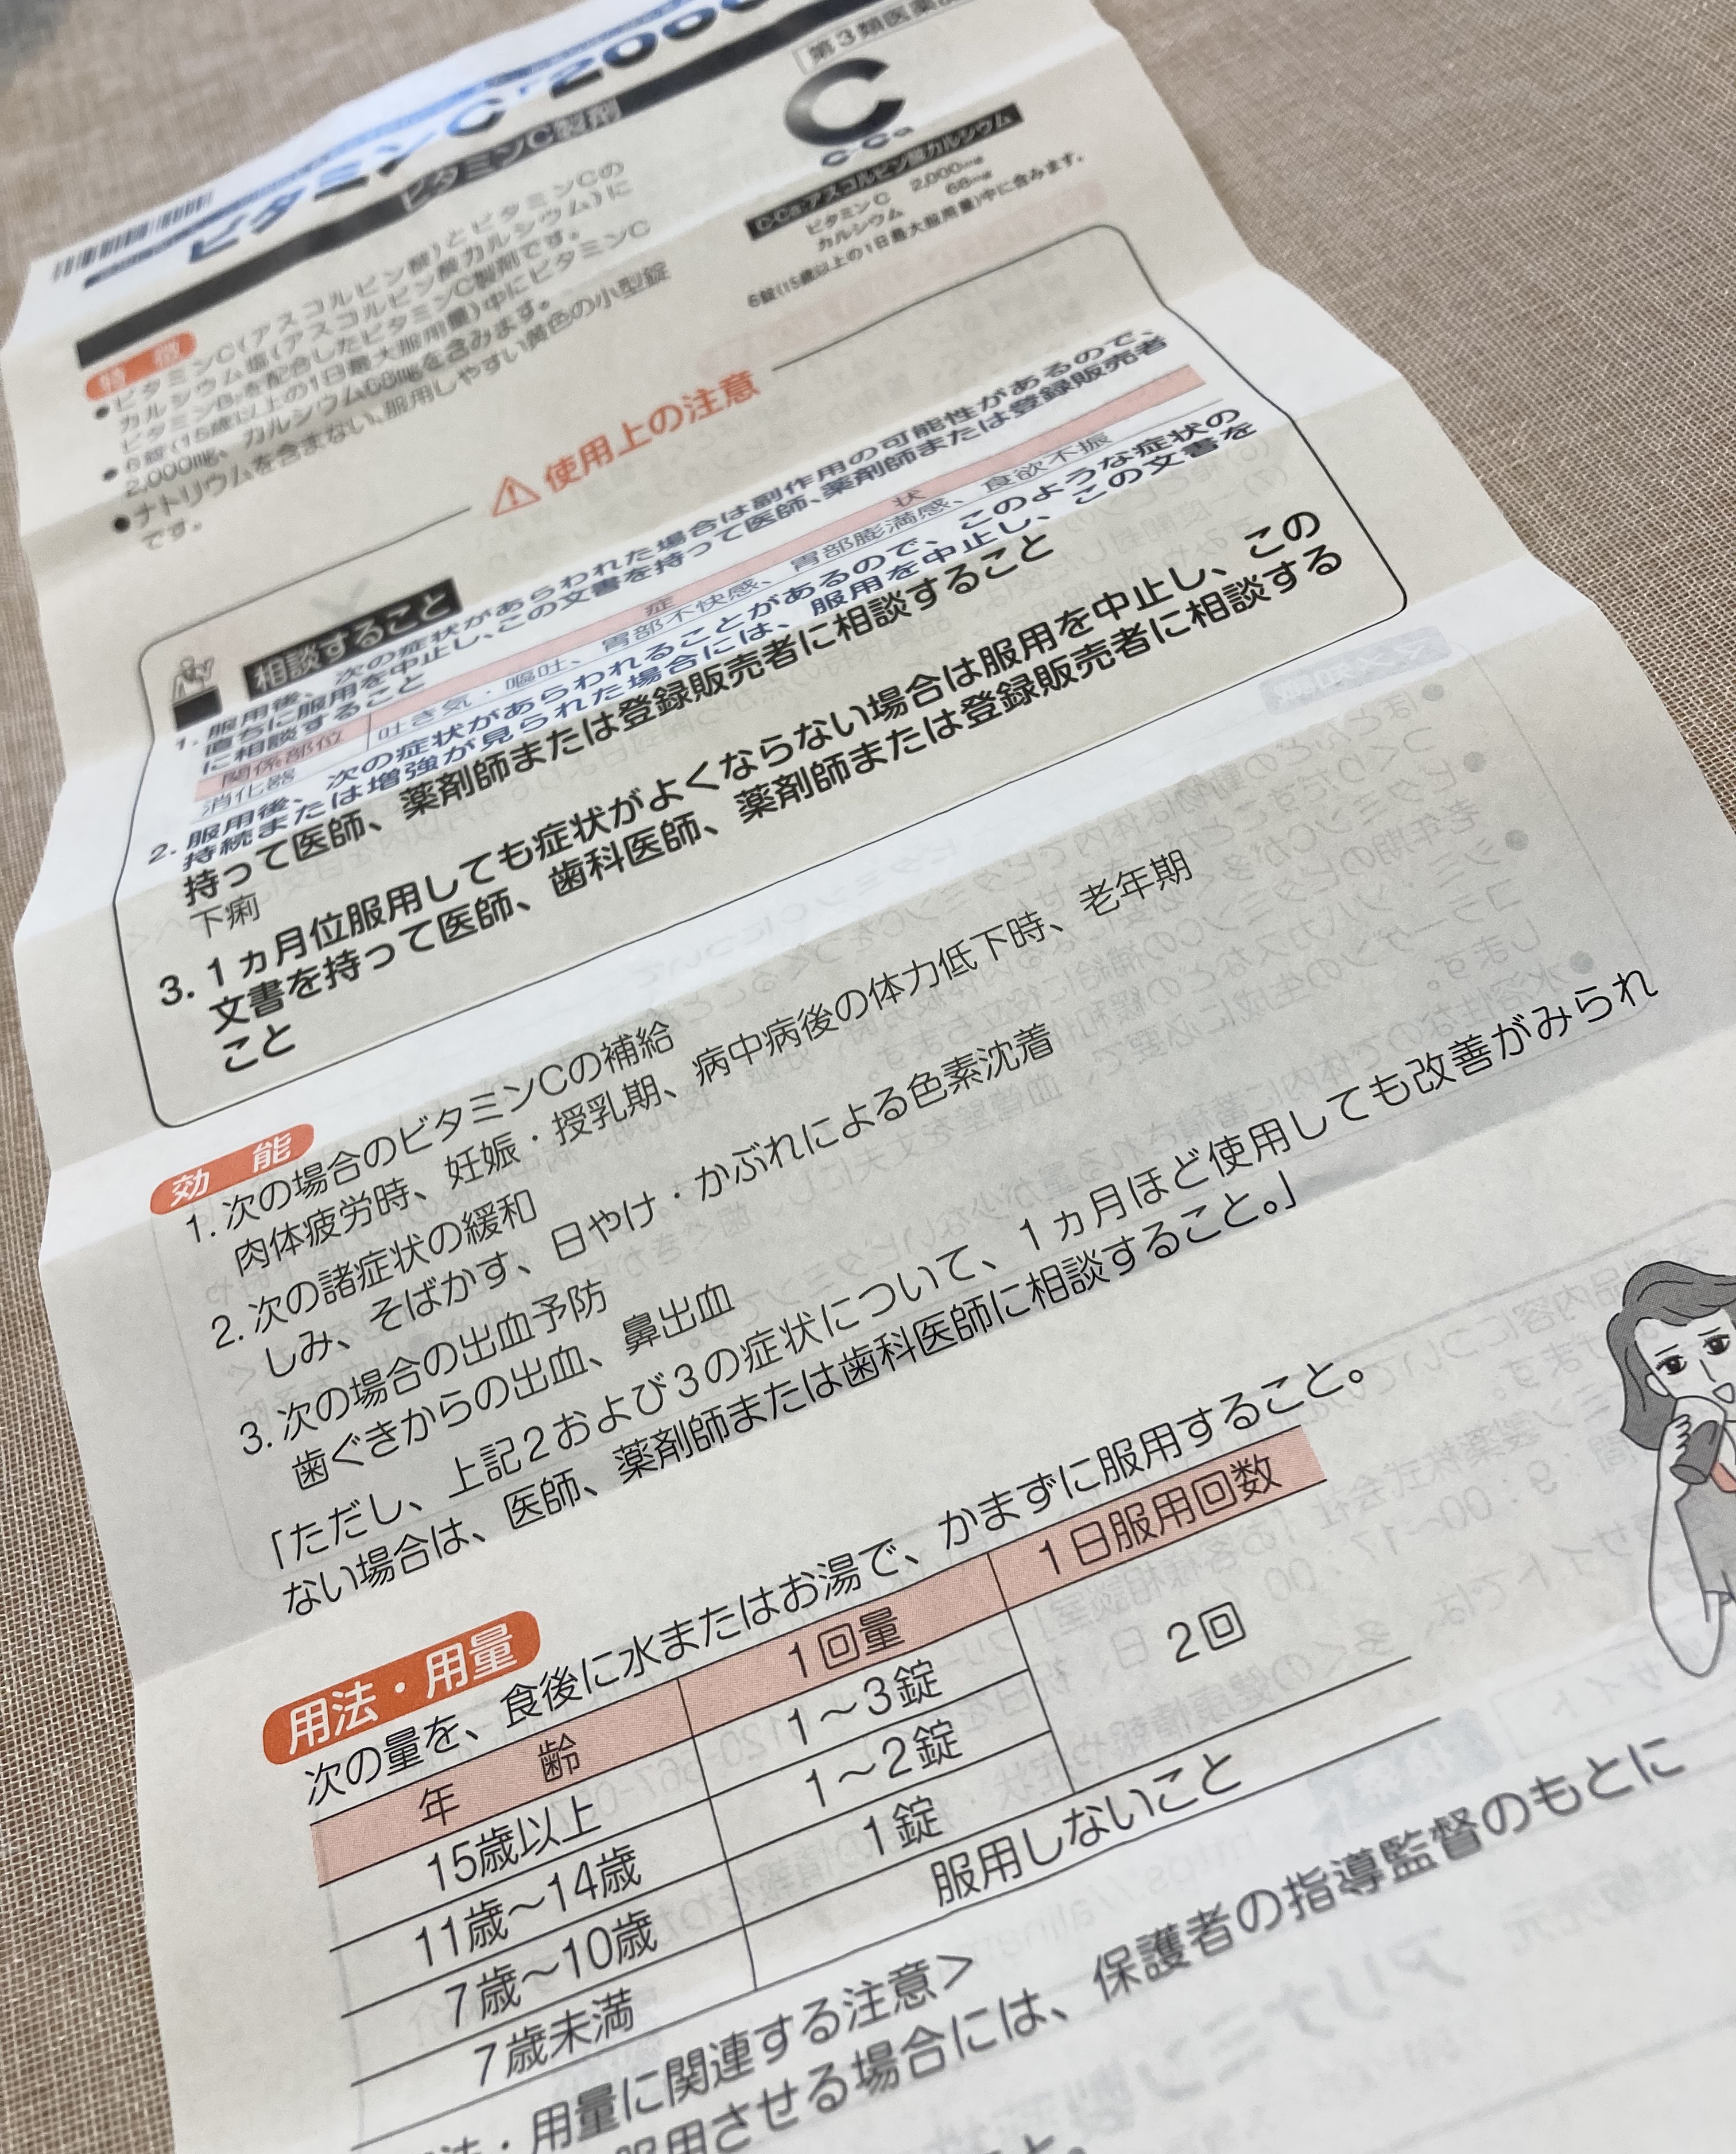 ビタミンC「2000
ビタミンC製剤
第3類医薬
C
C-Ca
C-Ca:アスコルビン酸カルシウム
ビタミンC 2,000mg
カルシウム 68mg
6錠(15歳以上の1日最大服用量)中に含みます。
特徴
●ビタミンC(アスコルビン酸)とビタミンCの
カルシウム塩(アスコルビン酸カルシウム)に
ビタミンB₂を配合したビタミンC製剤です。
●6錠(15歳以上の1日最大服用量)中にビタミンC
2,000mg、カルシウム68mgを含みます。
●ナトリウムを含まない、服用しやすい黄色の小型錠
です。
使用上の注意
相談すること
1. 服用後、次の症状があらわれた場合は副作用の可能性があるので、
直ちに服用を中止し、この文書を持って医師、薬剤師または登録販売者
に相談すること
関係部位 症状
消化器 吐き気・嘔吐、胃部不快感、胃部膨満感、食欲不振
2. 服用後、次の症状があらわれることがあるので、このような症状の
持続または増強が見られた場合には、服用を中止し、この文書を
持って医師、薬剤師または登録販売者に相談すること
下痢
3. 1ヵ月位服用しても症状がよくならない場合は服用を中止し、この
文書を持って医師、歯科医師、薬剤師または登録販売者に相談する
こと
効能
1. 次の場合のビタミンCの補給
肉体疲労時、妊娠・授乳期、病中病後の体力低下時、老年期
2. 次の諸症状の緩和
しみ、そばかす、日やけ・かぶれによる色素沈着
3. 次の場合の出血予防
歯ぐきからの出血、鼻出血
「ただし、上記2および3の症状について、1ヵ月ほど使用しても改善がみられ
ない場合は、医師、薬剤師または歯科医師に相談すること。」
用法・用量
次の量を、食後に水またはお湯で、かまずに服用すること。
年齢 1回量 1日服用回数
15歳以上 1～3錠 2回
11歳～14歳 1～2錠
7歳～10歳 1錠
7歳未満 服用しないこと
・用量に関連する注意＞
服用させる場合には、保護者の指導監督のもとに